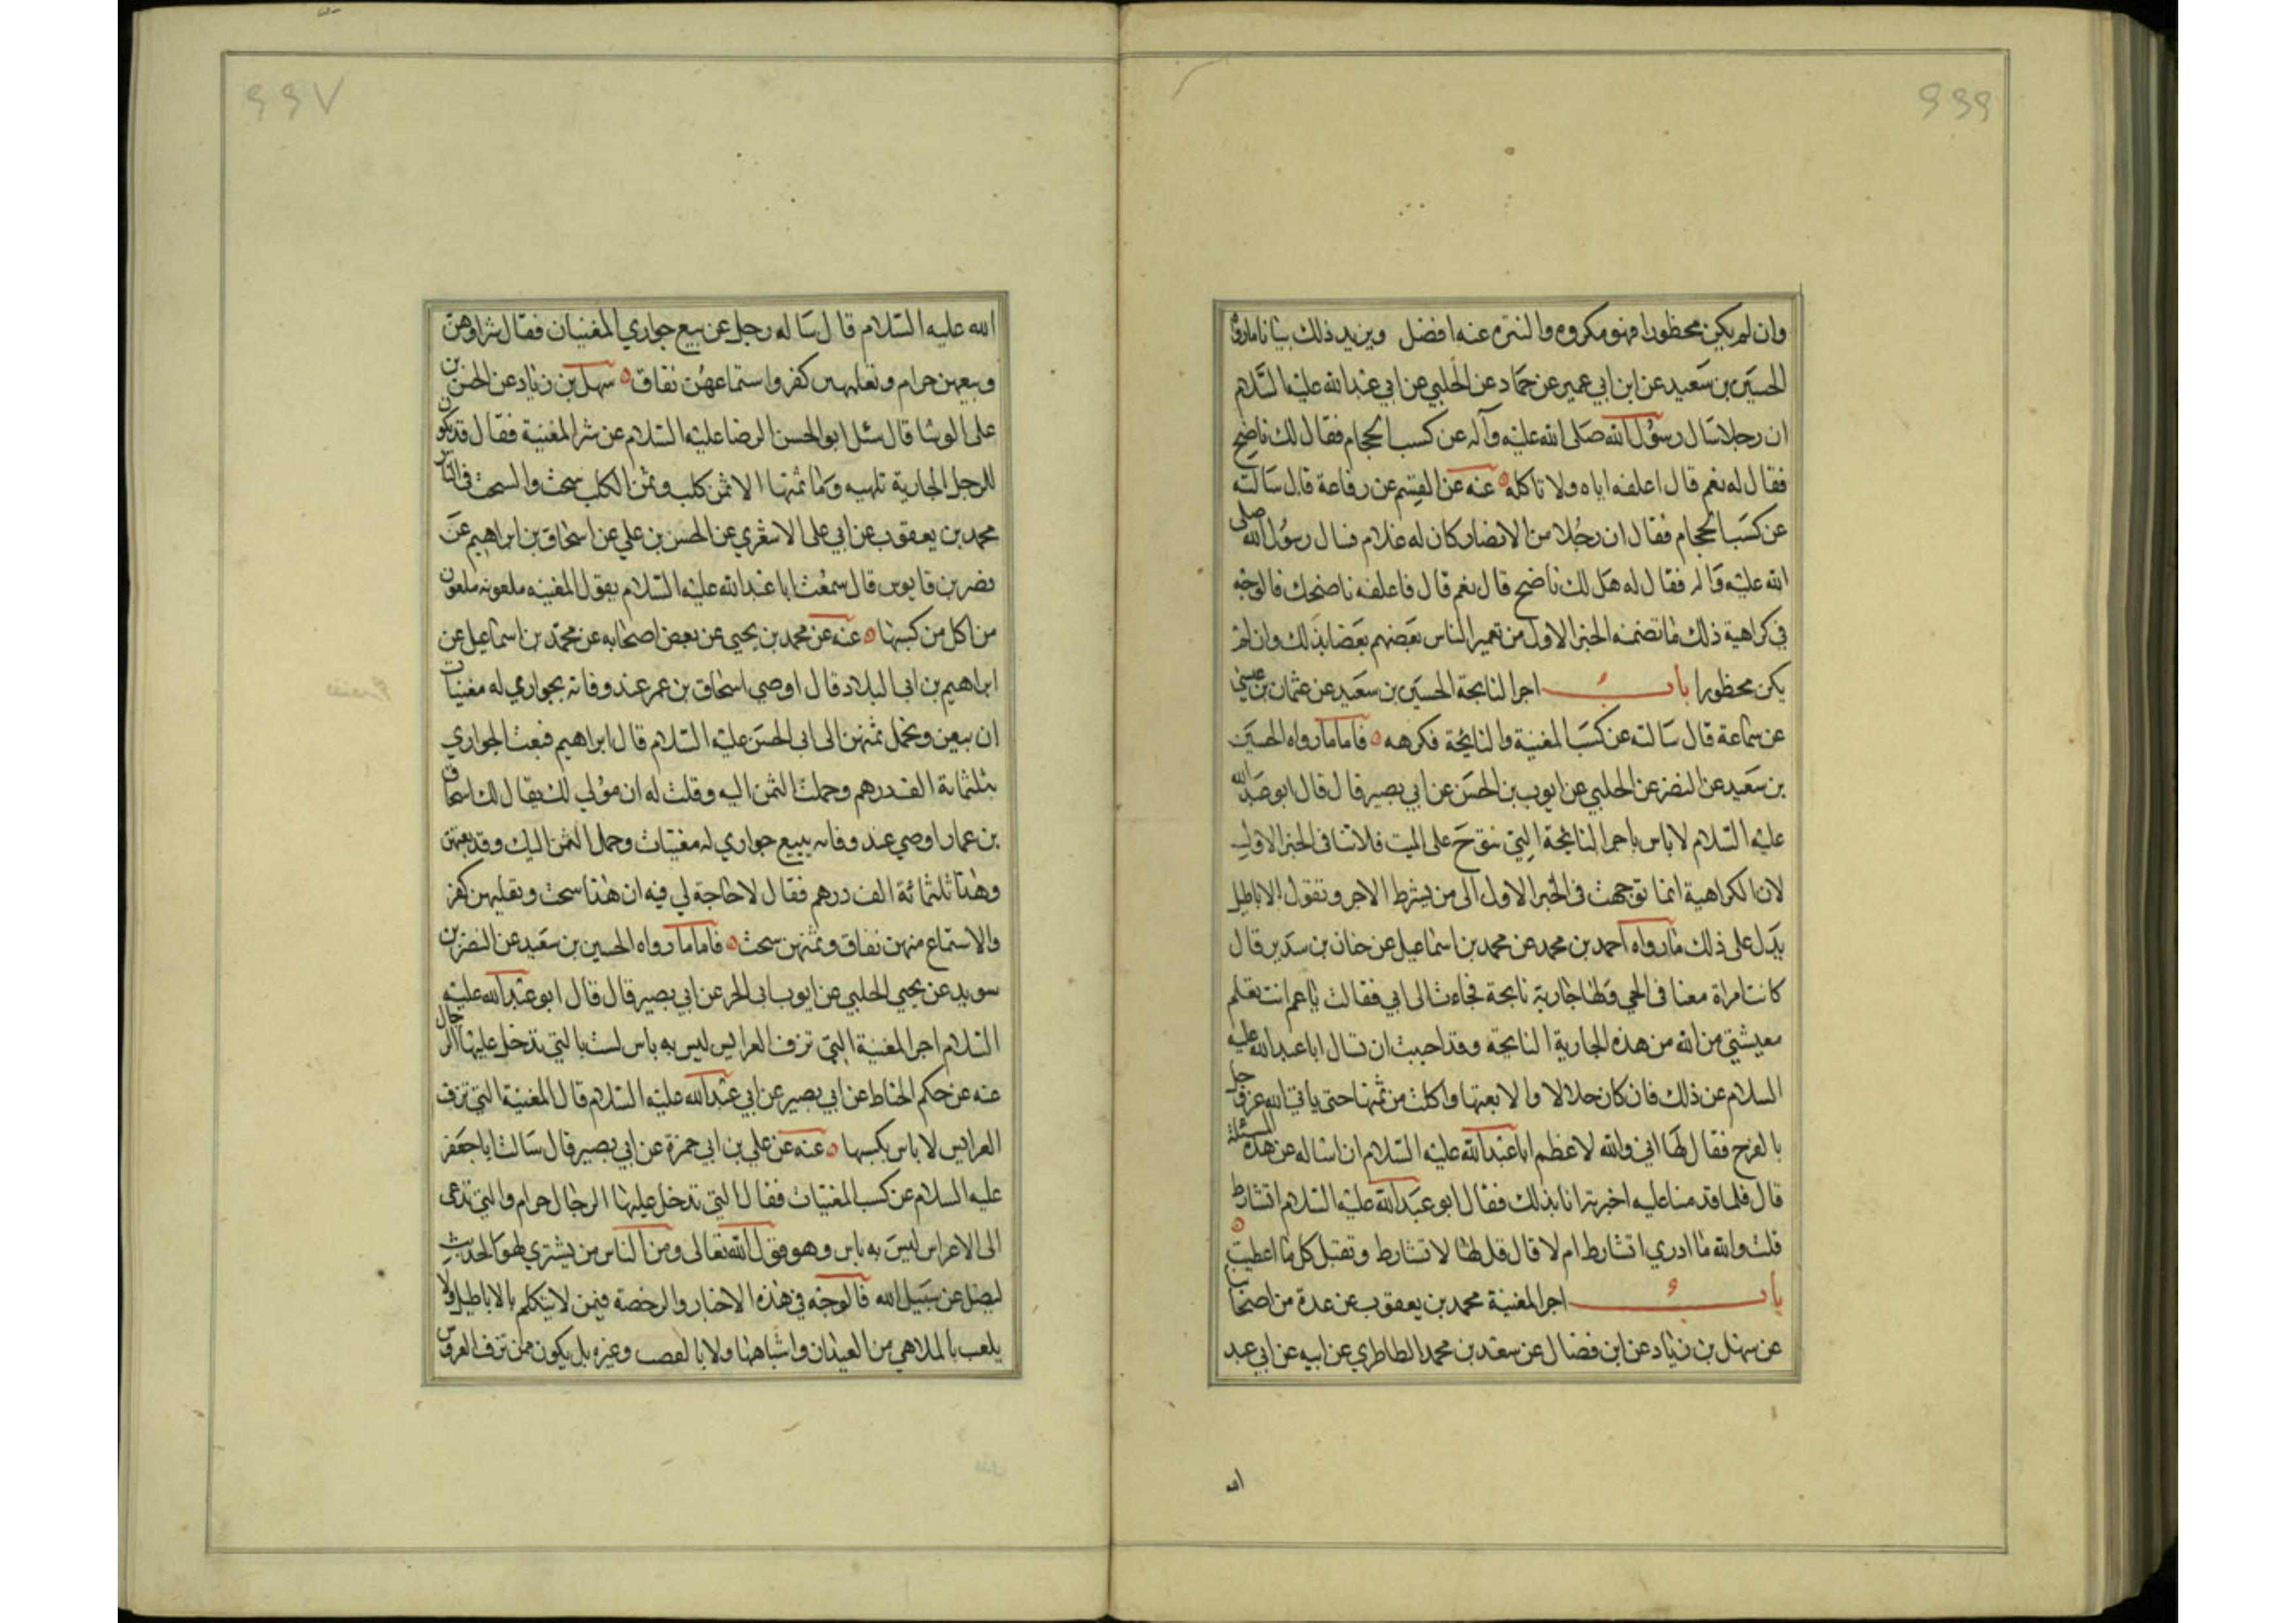 ۶۶۶
وان لم يكن محظورا فهو مكروه والتنزه عنه افضل ويزيد ذلك بيانا مارواه
الحسين بن سعيد عن ابن ابي عمير عن حماد عن الحلبي عن ابي عبدالله عليه السلام
ان رجلا سال رسول الله صلى الله عليه وآله عن كسب الحجام فقال لك ناضح
فقال له نعم قال اعلفه اياه ولا تاكله عنه عن القسم عن رفاعة قال سالته
عن كسب الحجام فقال ان رجلا من الانصار كان له غلام فسال رسول الله صلى
الله عليه واله فقال له هل لك ناضح قال نعم قال فاعلفه ناضحك فالوجه
في كراهية ذلك ما تضمنه الخبر الاول من تعيير الناس بعضهم بعضا بذلك وان لم
يكن محظورا باب اجر النايحة الحسين بن سعيد عن عثمان بن عيسى
عن سماعة قال سالته عن كسب المغنية والنايحة فكرهه فاما مارواه الحسين
بن سعيد عن النضر عن الحلبي عن ايوب بن الحسن عن ابي بصير قال قال ابو عبدالله
عليه السلام لا باس باجر النايحة التي تنوح على الميت فلا تنافى الخبر الاول
لان الكراهية انما توجهت في الخبر الاول الى من يشرط الاجر وتقول الاباطيل
يدل على ذلك مارواه احمد بن محمد عن محمد بن اسماعيل عن حنان بن سدير قال
كانت امراة معنا في الحي ولها جارية نايحة فجاءت الى ابي فقالت يا عم انت تعلم
معيشتي من الله من هذه الجارية النايحة وقد احببت ان تسال ابا عبدالله عليه
السلام عن ذلك فان كان حلالا والا بعتها واكلت من ثمنها حتى ياتي الله عز وجل
بالفرج فقال لها ابي والله لاعظم ابا عبدالله عليه السلام ان اساله عن هذه المسئلة
قال فلما قدمنا عليه اخبرته انا بذلك فقال ابو عبدالله عليه السلام اتشارط
قلت والله ما ادري اتشارط ام لا قال قل لها لا تشارط وتقبل كل ما اعطيت
باب اجر المغنية محمد بن يعقوب عن عدة من اصحابنا
عن سهل بن زياد عن ابن فضال عن سعد بن محمد الطاطري عن ابيه عن ابي عبد
الله
۶۶۷
الله عليه السلام قال ساله رجل عن بيع جواري المغنيات فقال شراوهن
وبيعهن حرام وتعليمهن كفر واستماعهن نفاق سهل بن زياد عن الحسن بن
على الوشا قال سئل ابو الحسن الرضا عليه السلام عن شرا المغنية فقال قد يكون
للرجل الجارية تلهيه وما ثمنها الا ثمن كلب وثمن الكلب سحت والسحت في النار
محمد بن يعقوب عن ابي على الاشعري عن الحسن بن علي عن اسحاق بن ابراهيم عن
نضر بن قابوس قال سمعت ابا عبدالله عليه السلام يقول المغنيه ملعونه ملعون
من اكل من كسبها عنه عن محمد بن يحيى عن بعض اصحابه عن محمد بن اسماعيل عن
ابراهيم بن ابى البلاد قال اوصى اسحاق بن عمر عند وفاته بجواري له مغنيات
ان نبيعهن ونحمل ثمنهن الى ابى الحسن عليه السلام قال ابراهيم فبعت الجواري
بثلثمائة الف درهم وحملت الثمن اليه وقلت له ان مولى لك يقال لك اسحاق
بن عمار اوصى عند وفاته ببيع جواري له مغنيات وحمل الثمن اليك وقد بعتهن
وهذا ثلثمائة الف درهم فقال لا حاجة لي فيه ان هذا سحت وتعليمهن كفر
والاستماع منهن نفاق وثمنهن سحت فاما مارواه الحسين بن سعيد عن النضر بن
سويد عن يحيى الحلبي عن ايوب ابي الحر عن ابي بصير قال قال ابو عبدالله عليه
السلام اجر المغنية التي تزف العرايس ليس به باس لست بالتي تدخل عليها الرجال
عنه عن حكم الحناط عن ابي بصير عن ابي عبدالله عليه السلام قال المغنية التي تزف
العرايس لا باس بكسبها عنه عن علي بن ابي حمزة عن ابي بصير قال سالت ابا جعفر
عليه السلام عن كسب المغنيات فقال التي تدخل عليها الرجال حرام والتي تدعى
الى الاعراس ليس به باس وهو قول الله تعالى ومن الناس من يشتري لهو الحديث
ليضل عن سبيل الله فالوجه في هذه الاخبار والرخصة فيمن لا يتكلم بالاباطيل ولا
يلعب بالملاهي من العيدان واشباهها ولا بالقصب وغيره بل يكون ممن تزف العروس